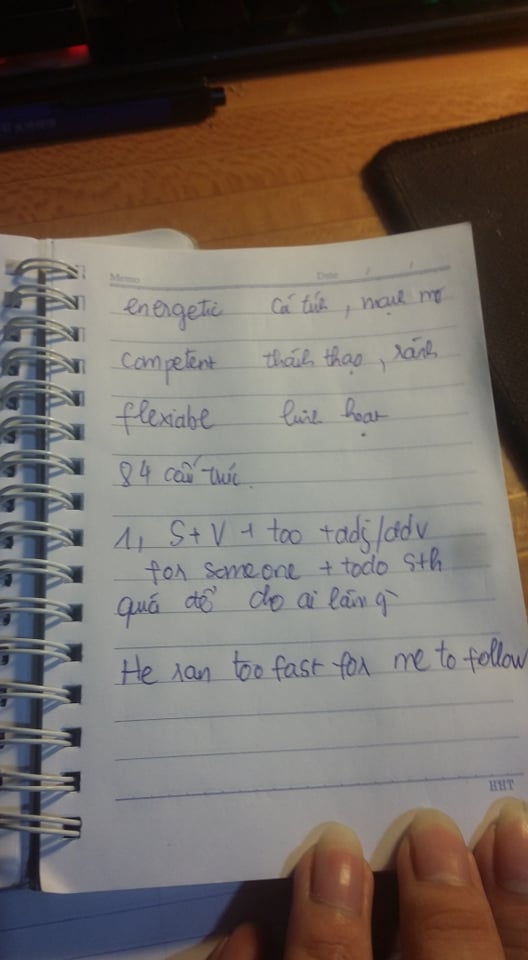 Memo Date / /
energetic cá tính, mạnh mẽ
competent thành thạo, rành
flexiable linh hoạt
84 cấu trúc.
1, S + V + too + adj/adv
for someone + todo sth
quá để cho ai làm gì
He ran too fast for me to follow
HHT